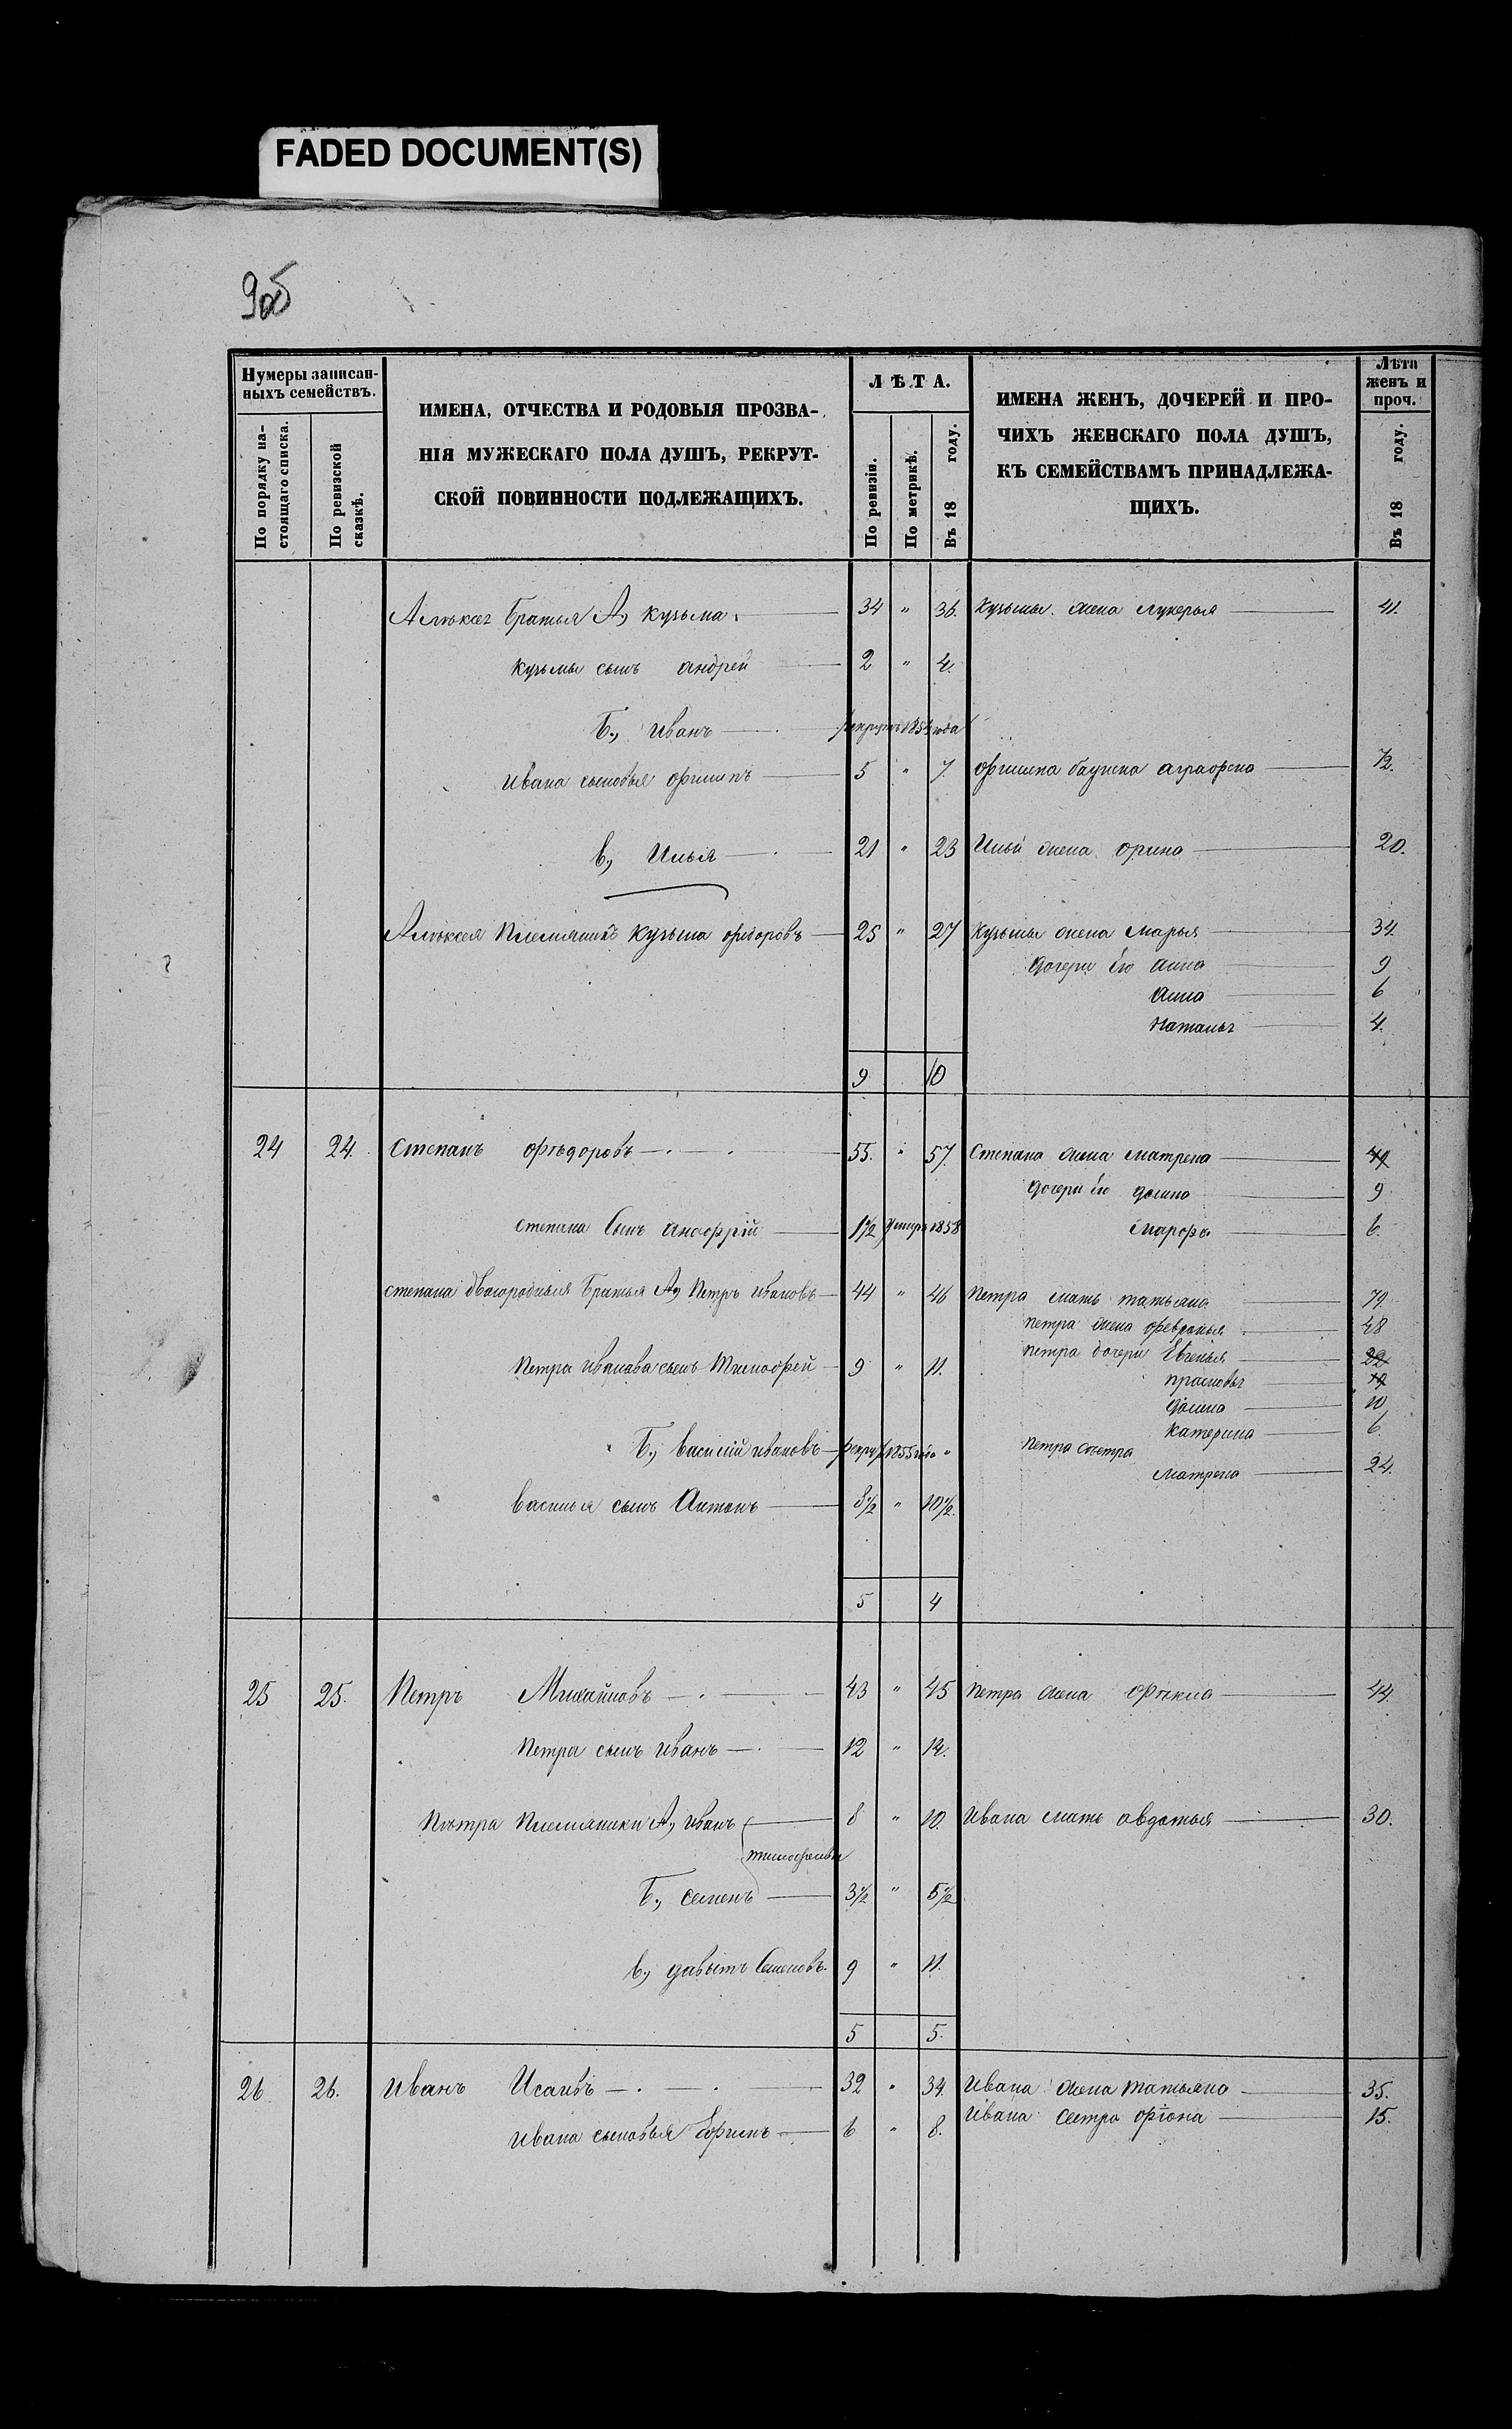 FADED DOCUMENT(S)
9об
Нумеры записан-
ныхъ семействъ.
По порядку на-
стоящаго списка.
По ревизской
сказкѣ.
ИМЕНА, ОТЧЕСТВА И РОДОВЫЯ ПРОЗВА-
НІЯ МУЖЕСКАГО ПОЛА ДУШЪ, РЕКРУТ-
СКОЙ ПОВИННОСТИ ПОДЛЕЖАЩИХЪ.
ЛѢТА.
По ревизіи.
По метрикѣ.
Въ 18 году.
ИМЕНА ЖЕНЪ, ДОЧЕРЕЙ И ПРО-
ЧИХЪ ЖЕНСКАГО ПОЛА ДУШЪ,
КЪ СЕМЕЙСТВАМЪ ПРИНАДЛЕЖА-
ЩИХЪ.
Лѣта
женъ и
проч.
Въ 18 году.
братья А, Кузьма 34 " 36. Кузьмы жена Лукерья 41.
Кузьмы сынъ андрей 2 " 4.
Б., Иванъ года
Ивана сыновья филипъ 5 " 7. филипа бапка аграфена 72.
В, Илья 21 " 23 Ильи жена орина 20.
Алѣксея племяникъ Кузьма фѣдоровъ 25 " 27 Кузьмы жена Марья 34.
дочери Ево Анна 9
Анна 6
Наталья 4.
9 10
24 24. Степанъ Фѣдоровъ 55. " 57. Степана жена Матрена
дочери Ево домна 9
степана Сынъ анофрій 1½ умеръ 1858 Марфа 6.
степана двоюродныя братья А, Петръ ивановъ 44 " 46 Петра мать татьяна 79.
петра жена февронья 48
Петра Иванова сынъ Тимофей 9 " 11. петра дочери Евгенья 22
прасковья
домна 10
катерина 6.
Б., василій ивановъ рекрут 1855 года " Петра сестра
Матрена 24.
василья сынъ Антонъ 8½ " 10½.
5 4
25 25. Петръ Михайловъ 43 " 45 Петра жена Фѣкла 44.
Петра сынъ иванъ 12 " 14.
Пѣтра Племяники А, иванъ 8 " 10. Ивана мать авдотья 30.
тимофеевы
Б., семенъ 3½ " 5½
В, давытъ Семеновъ. 9 " 11.
5 5.
26 26. Иванъ Исаивъ 32 " 34. Ивана жена татьяна 35.
Ивана сестра фіона 15.
Ивана сыновья Ефимъ 6 " 8.